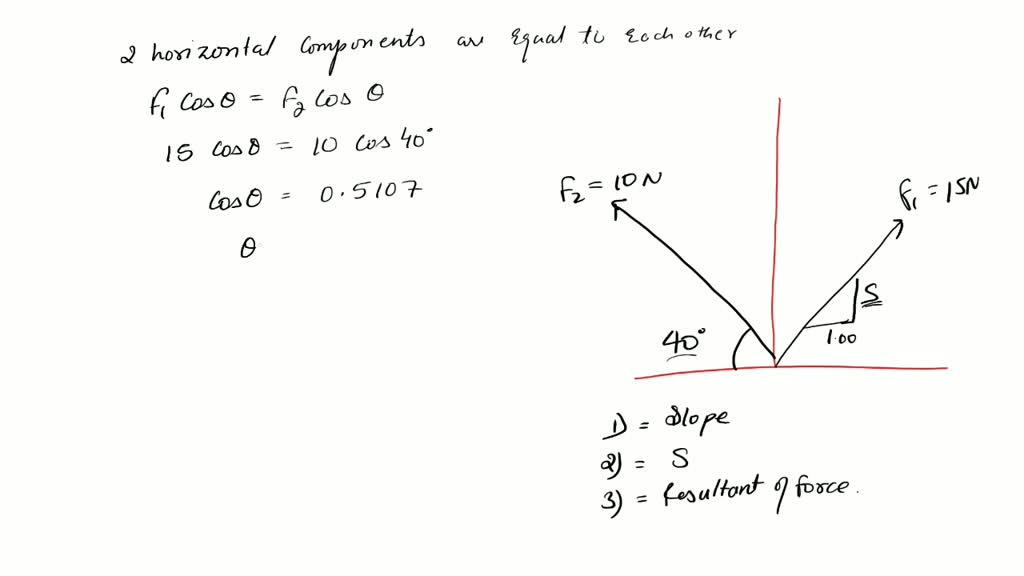 2 horizontal components are equal to each other
F₁ cos θ = F₂ cos θ
15 cos θ = 10 cos 40°
cos θ = 0.5107
θ
F₂ = 10 N
F₁ = 15N
S
1.00
40°
1) = Slope
2) = S
3) = Resultant of force.